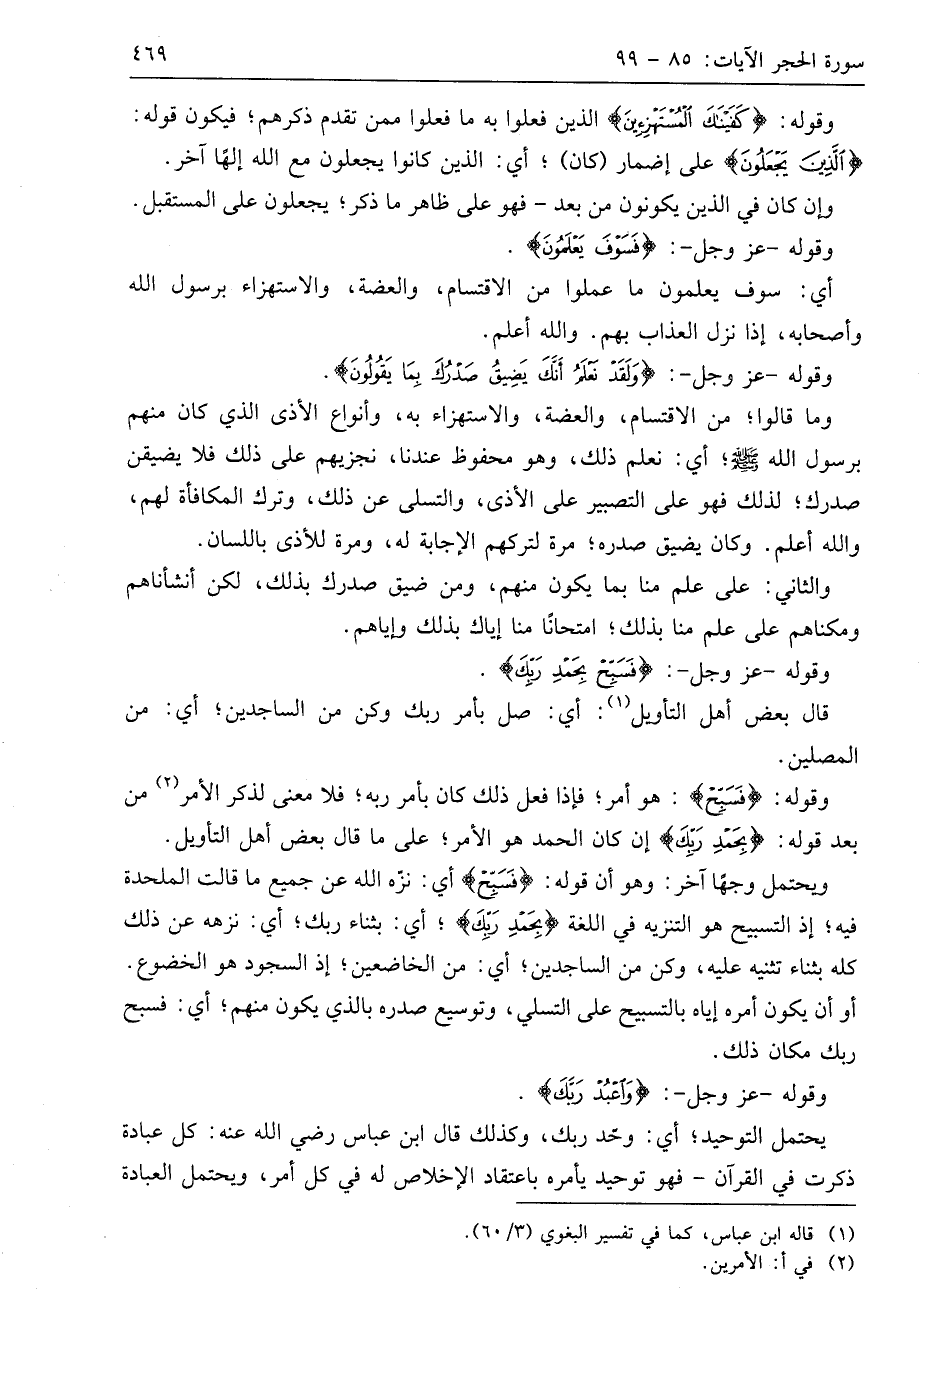 سورة الحجر الآيات: ٨٥ - ٩٩
٤٦٩
وقوله: ﴿كَفَيْنَاكَ الْمُسْتَهْزِءِينَ﴾ الذين فعلوا به ما فعلوا ممن تقدم ذكرهم؛ فيكون قوله:
﴿الَّذِينَ يَجْعَلُونَ﴾ على إضمار (كان) ؛ أي: الذين كانوا يجعلون مع الله إلهًا آخر.
وإن كان في الذين يكونون من بعد - فهو على ظاهر ما ذكر؛ يجعلون على المستقبل.
وقوله -عز وجل-: ﴿فَسَوْفَ يَعْلَمُونَ﴾ .
أي: سوف يعلمون ما عملوا من الاقتسام، والعضة، والاستهزاء برسول الله
وأصحابه، إذا نزل العذاب بهم. والله أعلم.
وقوله -عز وجل-: ﴿وَلَقَدْ نَعْلَمُ أَنَّكَ يَضِيقُ صَدْرُكَ بِمَا يَقُولُونَ﴾.
وما قالوا؛ من الاقتسام، والعضة، والاستهزاء به، وأنواع الأذى الذي كان منهم
برسول الله ﷺ؛ أي: نعلم ذلك، وهو محفوظ عندنا، نجزيهم على ذلك فلا يضيقن
صدرك؛ لذلك فهو على التصبير على الأذى، والتسلى عن ذلك، وترك المكافأة لهم،
والله أعلم. وكان يضيق صدره؛ مرة لتركهم الإجابة له، ومرة للأذى باللسان.
والثاني: على علم منا بما يكون منهم، ومن ضيق صدرك بذلك، لكن أنشأناهم
ومكناهم على علم منا بذلك؛ امتحانًا منا إياك بذلك وإياهم.
وقوله -عز وجل-: ﴿فَسَبِّحْ بِحَمْدِ رَبِّكَ﴾ .
قال بعض أهل التأويل(١): أي: صل بأمر ربك وكن من الساجدين؛ أي: من
المصلين.
وقوله: ﴿فَسَبِّحْ﴾ : هو أمر؛ فإذا فعل ذلك كان بأمر ربه؛ فلا معنى لذكر الأمر(٢) من
بعد قوله: ﴿بِحَمْدِ رَبِّكَ﴾ إن كان الحمد هو الأمر؛ على ما قال بعض أهل التأويل.
ويحتمل وجهًا آخر: وهو أن قوله: ﴿فَسَبِّحْ﴾ أي: نزّه الله عن جميع ما قالت الملحدة
فيه؛ إذ التسبيح هو التنزيه في اللغة ﴿بِحَمْدِ رَبِّكَ﴾ ؛ أي: بثناء ربك؛ أي: نزهه عن ذلك
كله بثناء تثنيه عليه، وكن من الساجدين؛ أي: من الخاضعين؛ إذ السجود هو الخضوع.
أو أن يكون أمره إياه بالتسبيح على التسلي، وتوسيع صدره بالذي يكون منهم؛ أي: فسبح
ربك مكان ذلك.
وقوله -عز وجل-: ﴿وَاعْبُدْ رَبَّكَ﴾ .
يحتمل التوحيد؛ أي: وحّد ربك، وكذلك قال ابن عباس رضي الله عنه: كل عبادة
ذكرت في القرآن - فهو توحيد يأمره باعتقاد الإخلاص له في كل أمر، ويحتمل العبادة
(١) قاله ابن عباس، كما في تفسير البغوي (٦٠/٣).
(٢) في أ: الأمرين.